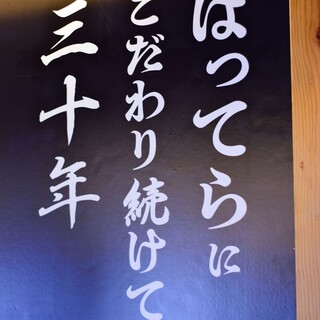 はってらに
こだわり続けて
三十年